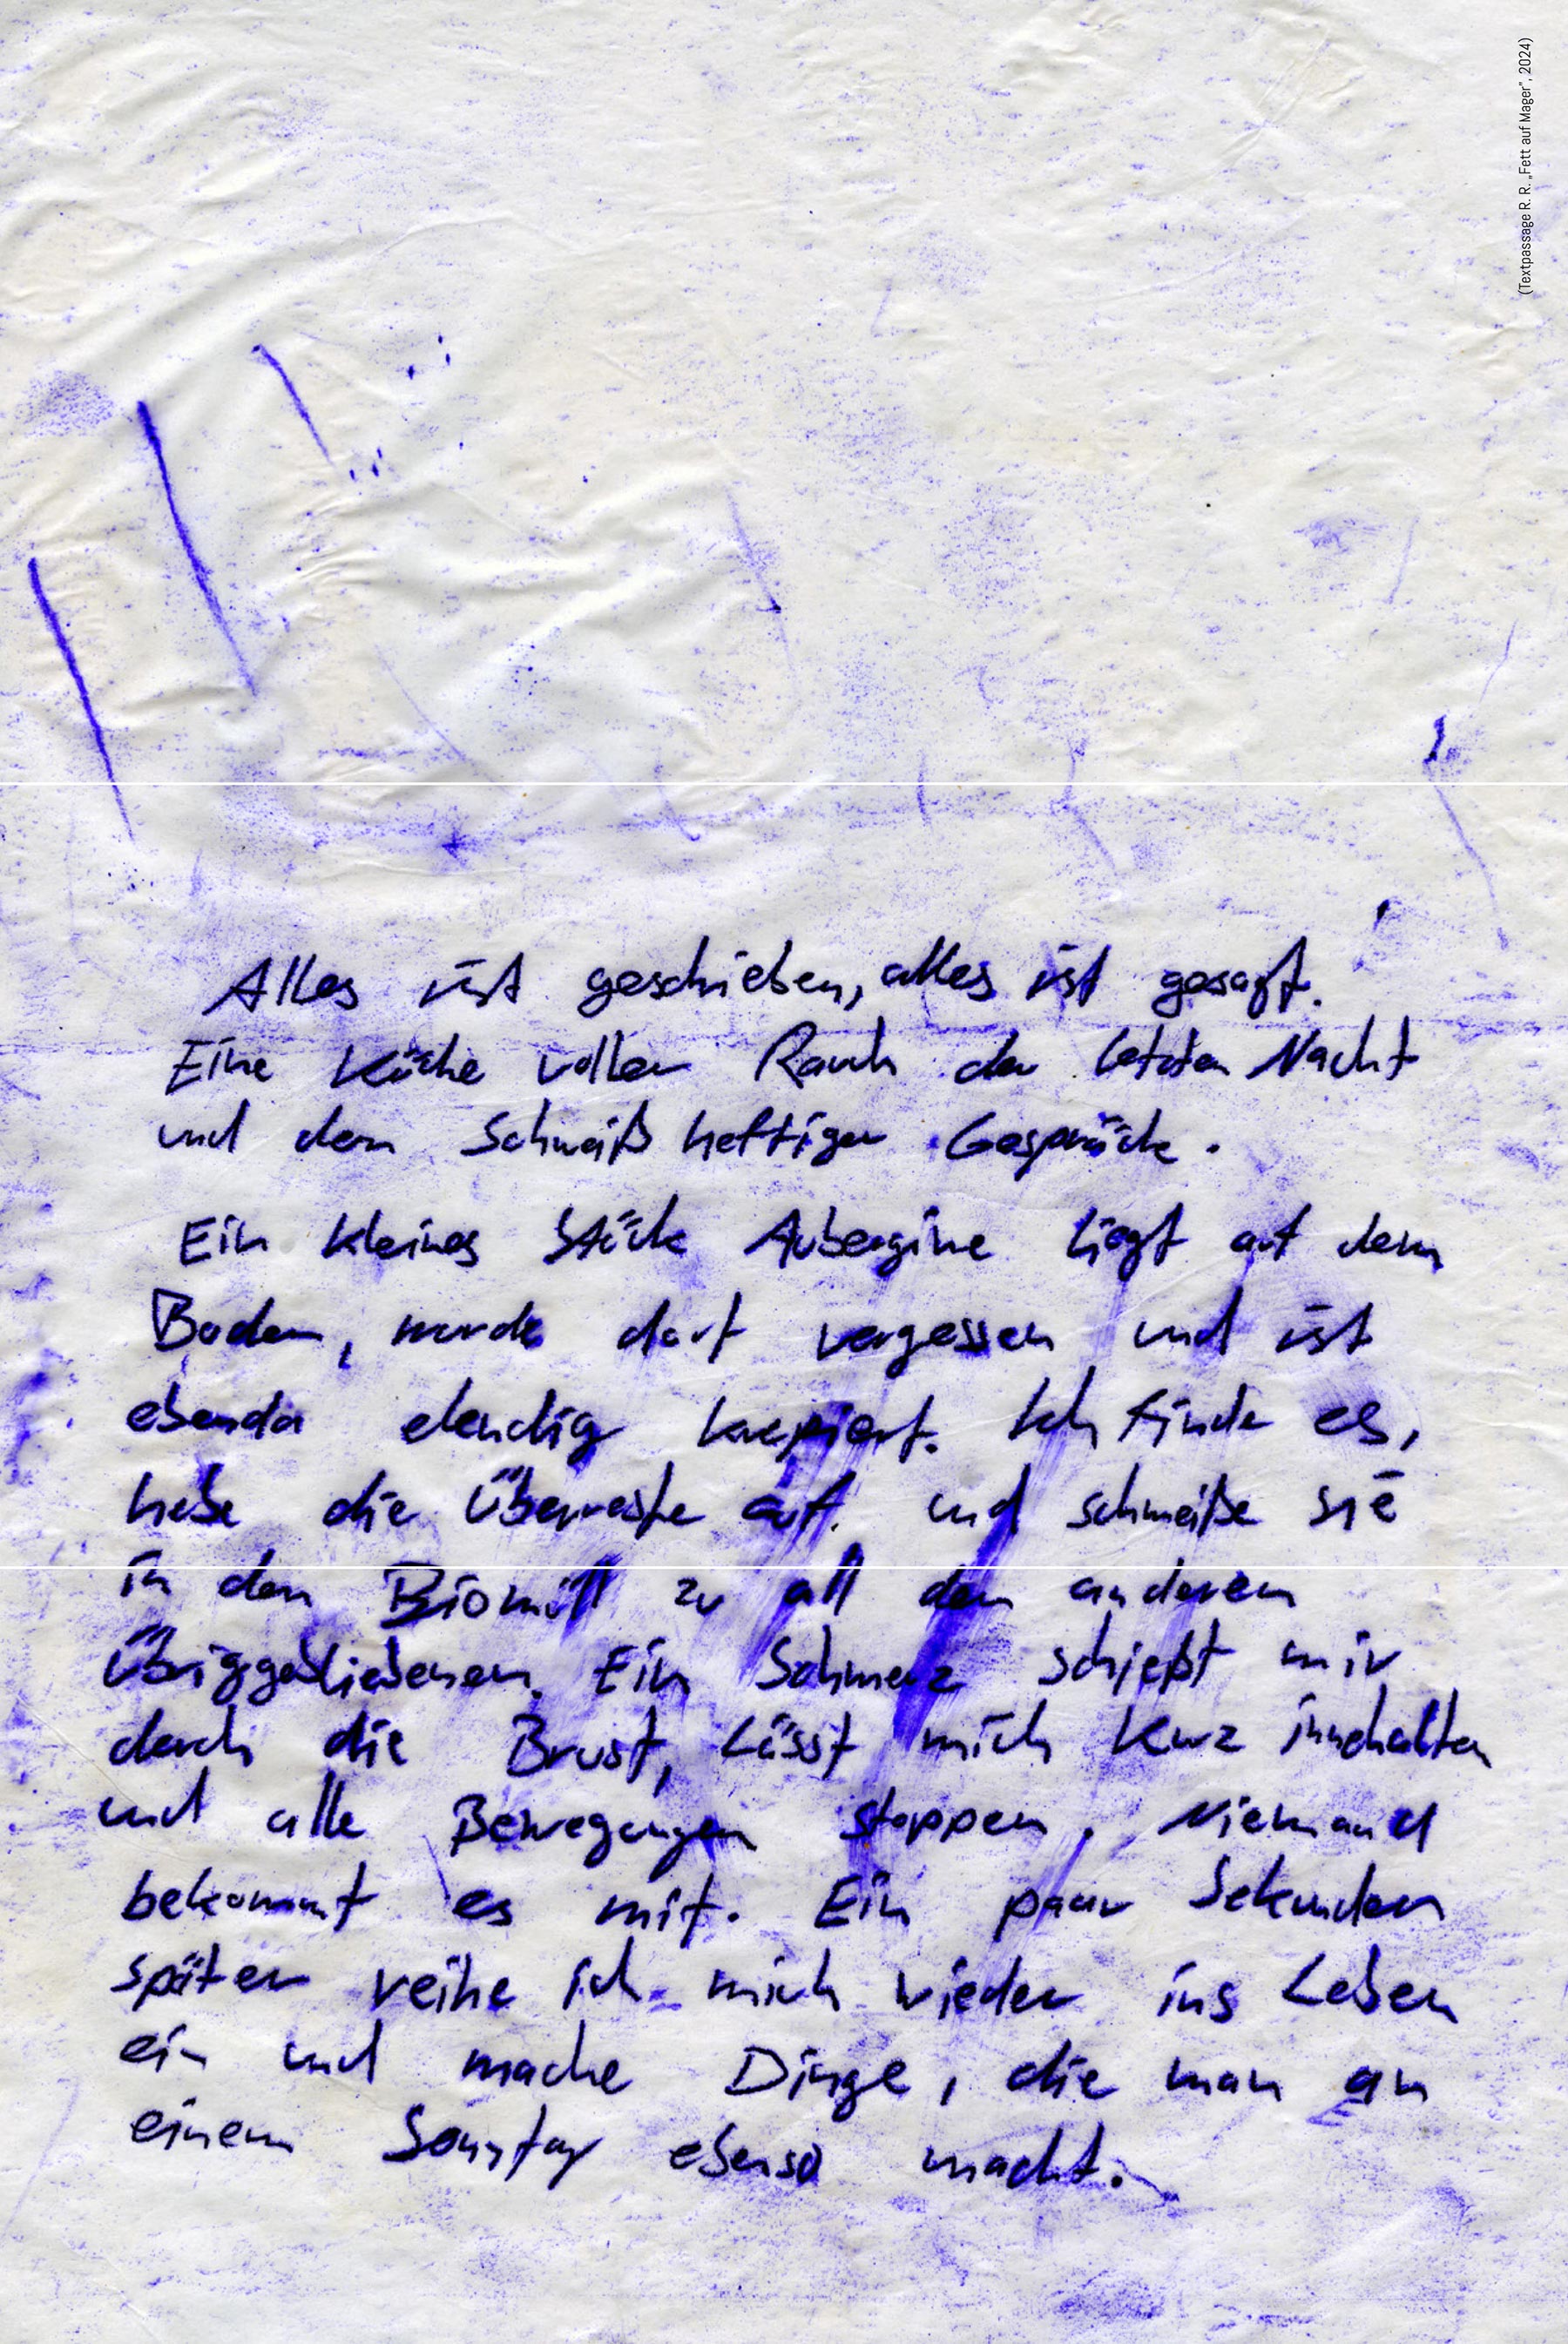 (Textpassage R. R. „Fett auf Mager", 2024)
Alles ist geschrieben, alles ist gesagt.
Eine Küche voller Rauch der letzten Nacht
und dem Schweiß heftiger Gespräche.
Ein kleines Stück Aubergine liegt auf dem
Boden, wurde dort vergessen und ist
ebenda elendig krepiert. Ich finde es,
hebe die Überreste auf. und schmeiße sie
in den Biomüll zu all den anderen
Übriggebliebenen. Ein Schmerz schießt mir
durch die Brust, Lässt mich kurz innehalten
und alle Bewegungen stoppen. Niemand
bekommt es mit. Ein paar Sekunden
später reihe ich mich wieder ins Leben
ein und mache Dinge, die man an
einem Sonntag ebenso macht.